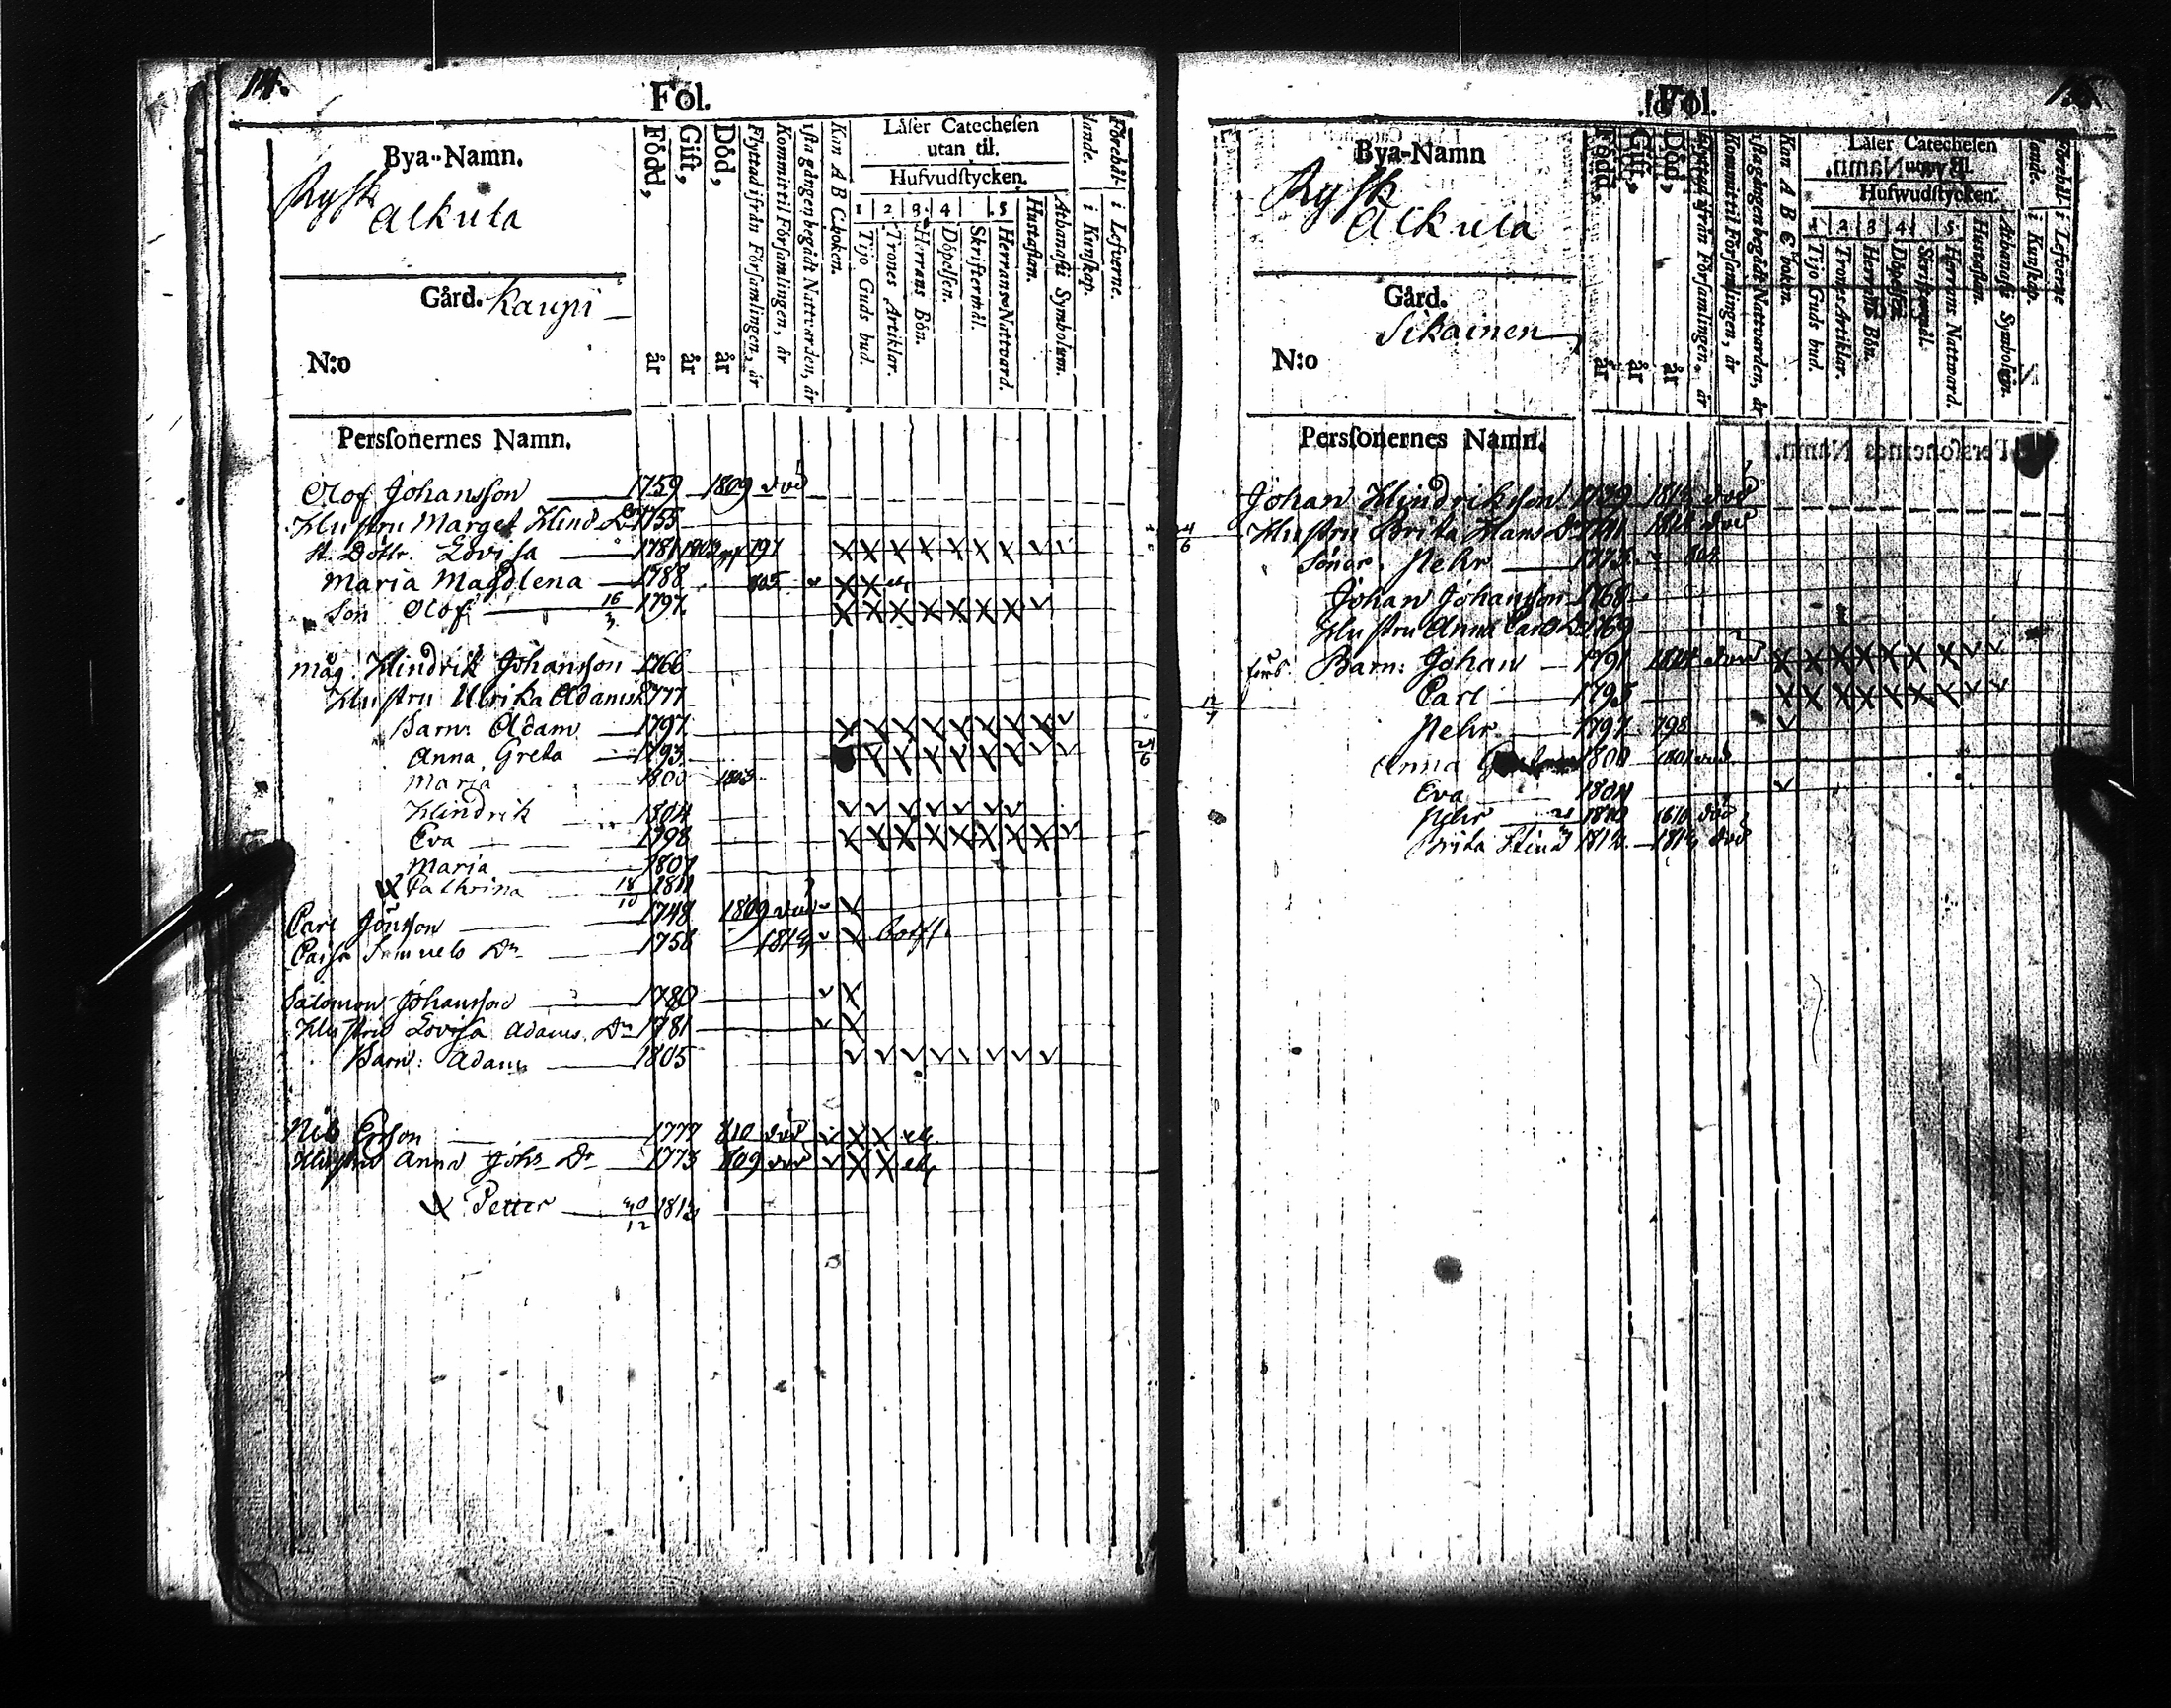 114.
Fol.
Bya-Namn.
Rysk
Alkula
Gård. Kaupi
N:o
Född, år
Gift, år
Död, år
Flyttad ifrån Församlingen, år
Kommit til Församlingen, år
1sta gången begådt Nattvarden, år
Kan A B C boken.
Läser Catechesen
utan til.
Hufvudstycken.
1 2 3. 4 5
Tijo Guds bud.
Trones Artiklar.
Herrans Bön.
Döpelsen.
Skriftermål.
Herrans Nattvard.
Hustaflan.
Athanasii Symbolum.
Förehållande.
i Kunskap.
i Lefverne.
Persones Namn.
Olof Johansson 1759 1809 död
Hustru Marget Hind Dr 1755
st. Dottr. Lovisa 1781 797
Maria Magdlena 1788 805
Son Olof 16/3 1797
måg Hindrik Johanson 1766
Hustru Ulrika Adams 1777
Barn: Adam 1797
Anna Greta 1793
Maria 1800 1803
Hindrik 1804
Eva 1798
Maria 1807
Cathrina 18/10 1811
Carl Jönsson 1748 1809 död
Caisa Samuels Dr 1758
Salomon Johansson 1780
Hustru Lovisa Adams Dr 1781
Barn: Adam 1805
Nils Erson 1777 810 död
Hustru Anna Johs Dr 1773 809 död
Petter 30/12 1813
Fol.
Bya-Namn
Rysk
Alkula
Gård.
Sikainen
N:o
Född, år
Gift, år
Död, år
Flyttad ifrån Församlingen, år
Kommit til Församlingen, år
1sta gången begådt Nattvarden, år
Kan A B C boken.
Läser Catechesen
utan til.
Hufwudstycken.
1 2 3 4 5
Tijo Guds bud.
Trones Artiklar.
Herrans Bön.
Döpelsen.
Skriftermål.
Herrans Nattward.
Hustaflan.
Athanasii Symbolum.
i Kunskap.
i Lefverne
Personernes Namn.
Johan Hindriksson 1739 död
Hustru Brita Hans Dr 1741 död
Söner. Pehr 1773
Johan Johanson 1768
Hustru Anna Carls Dr 1769
Barn: Johan 1791
Carl 1795
Pehr 1797 798
Anna 1800 1801 död
Eva 1804
Pehr 1810 1810 död
Brita Stina död